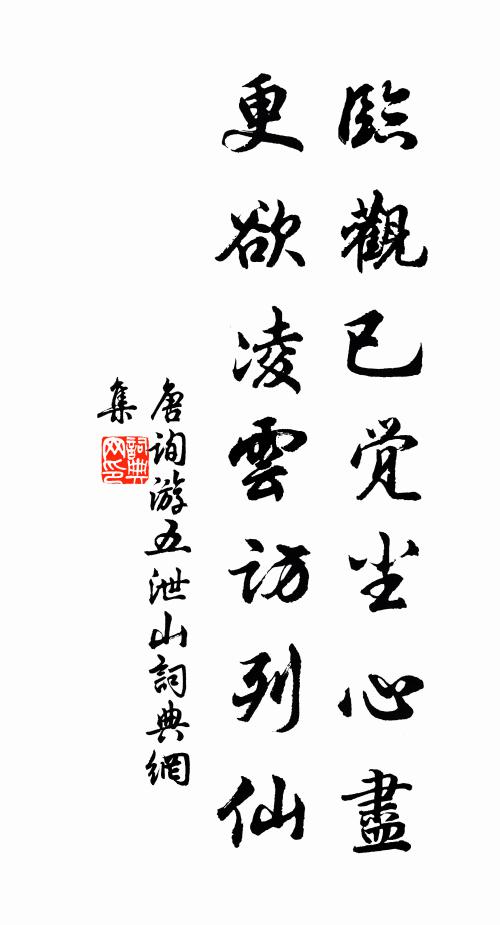 臨觀已觉尘心盡
更欲凌雲訪列仙
唐詢游五泄山詞典網
集
詞典
网印